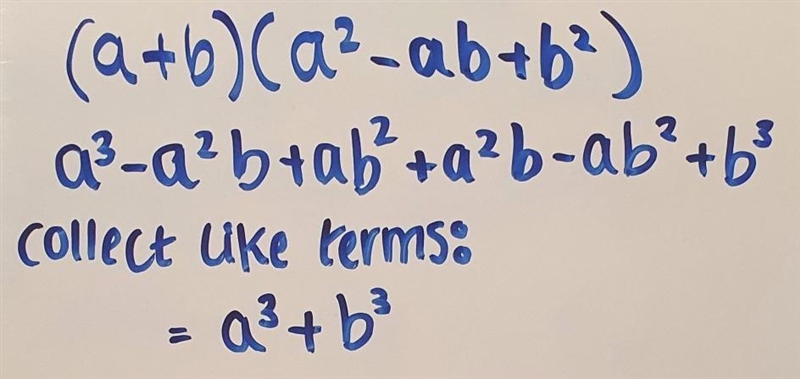 (a+b)(a²-ab+b²)
a³-a²b+ab²+a²b-ab²+b³
collect like terms:
= a³+b³